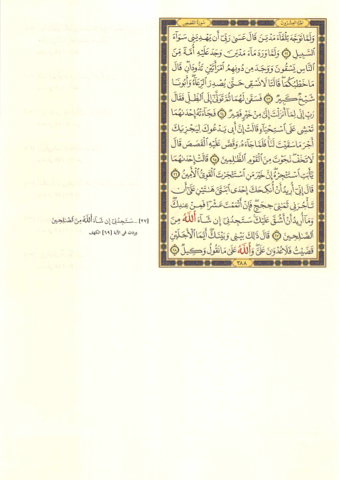 الجزء العشرون
سورة القصص
وَلَمَّا تَوَجَّهَ تِلْقَآءَ مَدْيَنَ قَالَ عَسَىٰ رَبِّىٓ أَن يَهْدِيَنِى سَوَآءَ
ٱلسَّبِيلِ ﴿٢٢﴾ وَلَمَّا وَرَدَ مَآءَ مَدْيَنَ وَجَدَ عَلَيْهِ أُمَّةً مِّنَ
ٱلنَّاسِ يَسْقُونَ وَوَجَدَ مِن دُونِهِمُ ٱمْرَأَتَيْنِ تَذُودَانِ قَالَ
مَا خَطْبُكُمَا قَالَتَا لَا نَسْقِى حَتَّىٰ يُصْدِرَ ٱلرِّعَآءُ وَأَبُونَا
شَيْخٌ كَبِيرٌ ﴿٢٣﴾ فَسَقَىٰ لَهُمَا ثُمَّ تَوَلَّىٰٓ إِلَى ٱلظِّلِّ فَقَالَ
رَبِّ إِنِّى لِمَآ أَنزَلْتَ إِلَىَّ مِنْ خَيْرٍ فَقِيرٌ ﴿٢٤﴾ فَجَآءَتْهُ إِحْدَىٰهُمَا
تَمْشِى عَلَى ٱسْتِحْيَآءٍ قَالَتْ إِنَّ أَبِى يَدْعُوكَ لِيَجْزِيَكَ
أَجْرَ مَا سَقَيْتَ لَنَا فَلَمَّا جَآءَهُۥ وَقَصَّ عَلَيْهِ ٱلْقَصَصَ قَالَ
لَا تَخَفْ نَجَوْتَ مِنَ ٱلْقَوْمِ ٱلظَّٰلِمِينَ ﴿٢٥﴾ قَالَتْ إِحْدَىٰهُمَا
يَٰٓأَبَتِ ٱسْتَـْٔجِرْهُ إِنَّ خَيْرَ مَنِ ٱسْتَـْٔجَرْتَ ٱلْقَوِىُّ ٱلْأَمِينُ ﴿٢٦﴾
قَالَ إِنِّىٓ أُرِيدُ أَنْ أُنكِحَكَ إِحْدَى ٱبْنَتَىَّ هَٰتَيْنِ عَلَىٰٓ أَن
تَأْجُرَنِى ثَمَٰنِىَ حِجَجٍ فَإِنْ أَتْمَمْتَ عَشْرًا فَمِنْ عِندِكَ
وَمَآ أُرِيدُ أَنْ أَشُقَّ عَلَيْكَ سَتَجِدُنِىٓ إِن شَآءَ ٱللَّهُ مِنَ
ٱلصَّٰلِحِينَ ﴿٢٧﴾ قَالَ ذَٰلِكَ بَيْنِى وَبَيْنَكَ أَيَّمَا ٱلْأَجَلَيْنِ
قَضَيْتُ فَلَا عُدْوَٰنَ عَلَىَّ وَٱللَّهُ عَلَىٰ مَا نَقُولُ وَكِيلٌ ﴿٢٨﴾
٣٨٨
(٢٧) - سَتَجِدُنِىٓ إِن شَآءَ ٱللَّهُ مِنَ ٱلصَّٰلِحِينَ
وردت في الآية [٦٩] الكهف